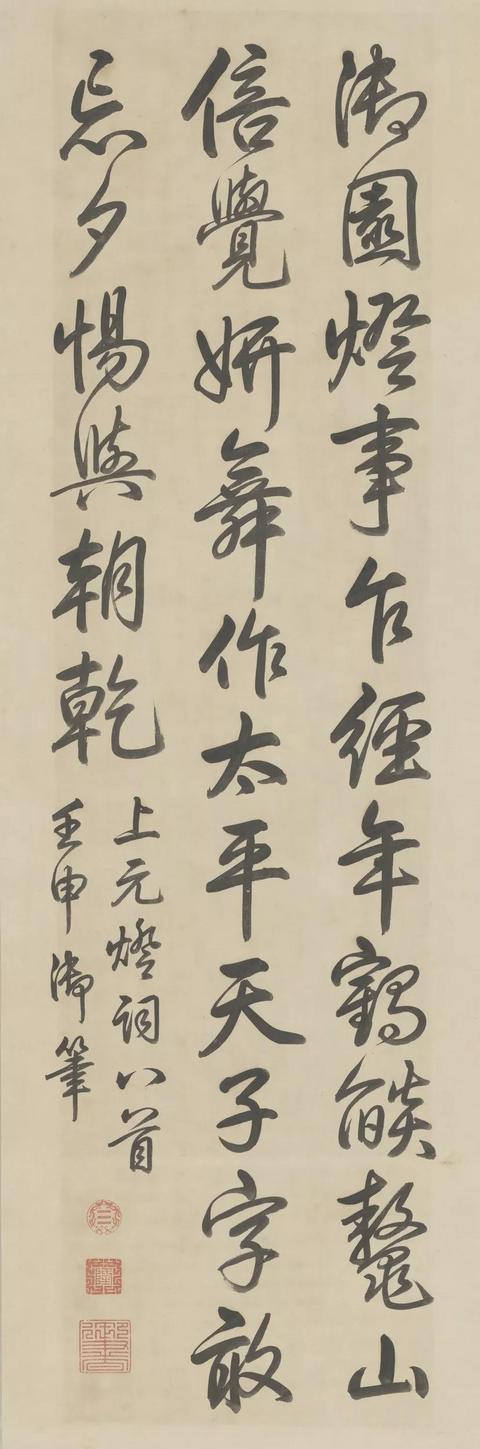 御園燈事乍經年鶴燄鼇山
倍覺妍舞作太平天子字敢
忘夕惕與朝乾
上元燈詞八首
壬申御筆